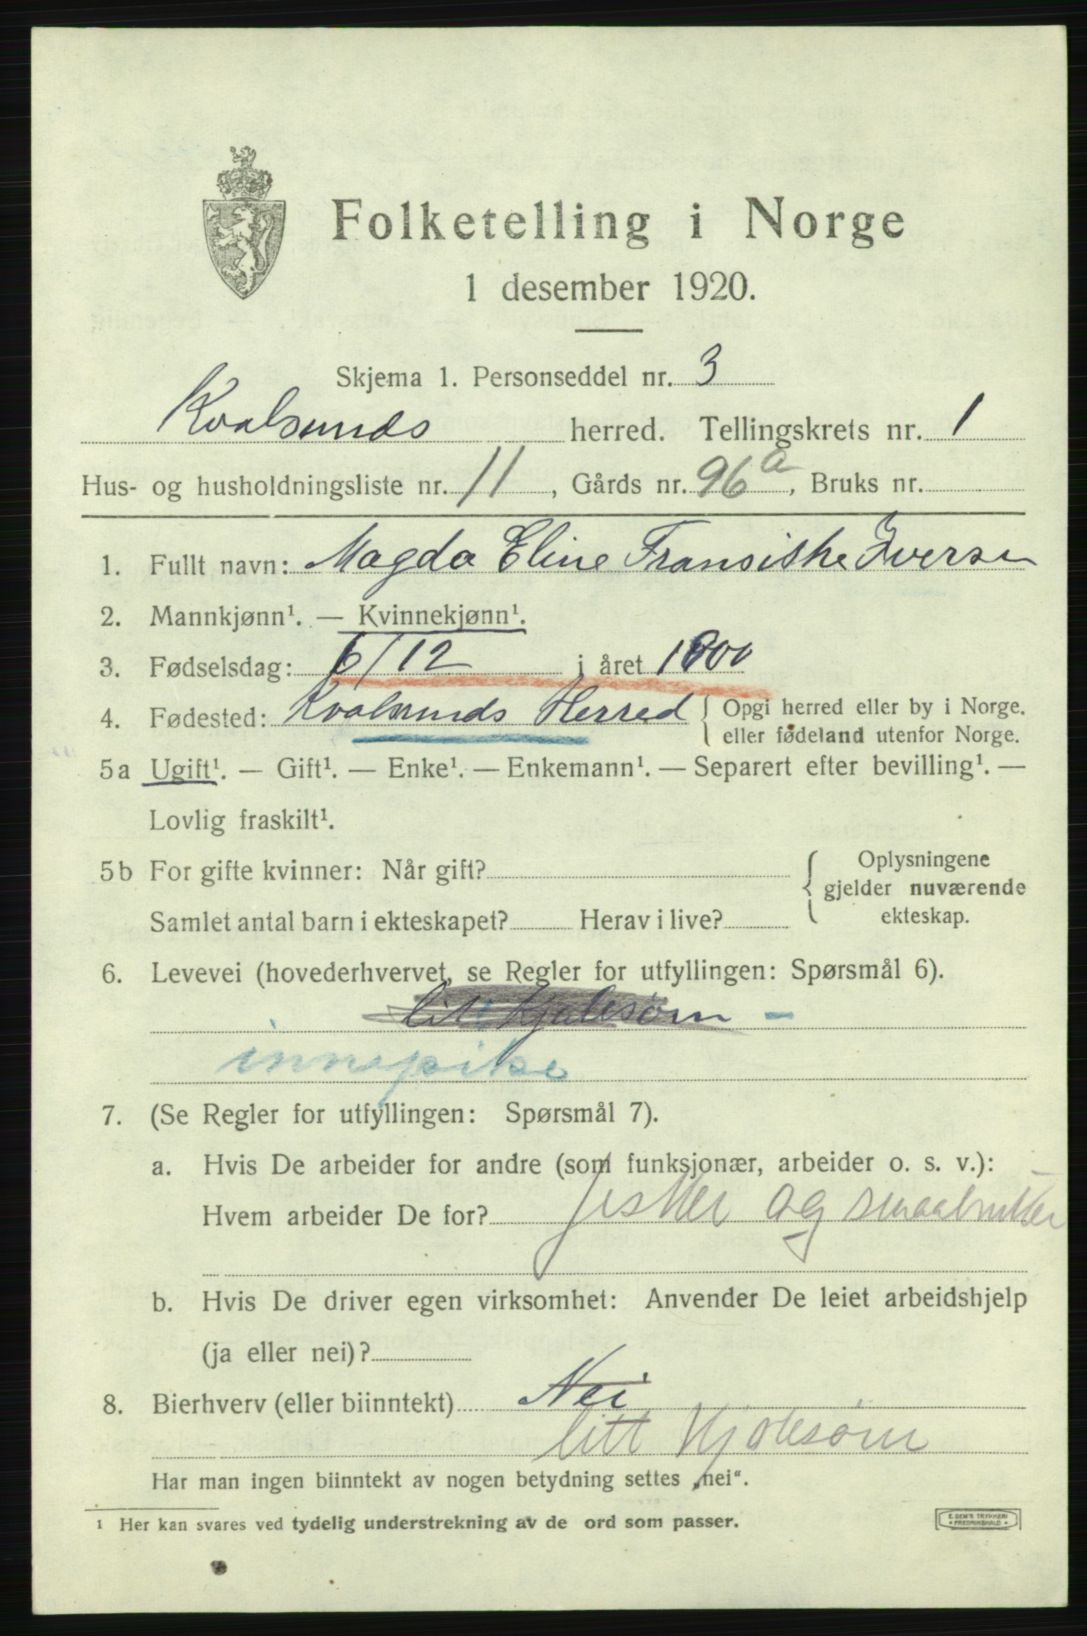 Folketelling i Norge
1 desember 1920.
Skjema 1. Personseddel nr. 3
Kvalsunds herred. Tellingskrets nr. 1
Hus- og husholdningsliste nr. 11, Gårds nr. 96 a, Bruks nr.
1. Fullt navn: Magda Eline Fransiske Iversen
2. Mannkjønn¹. — Kvinnekjønn¹.
3. Fødselsdag: 6/12 i året 1900
4. Fødested: Kvalsunds Herred { Opgi herred eller by i Norge.
eller fødeland utenfor Norge.
5a Ugift¹. — Gift¹. — Enke¹. — Enkemann¹. — Separert efter bevilling¹. —
Lovlig fraskilt¹.
5b For gifte kvinner: Når gift?
Samlet antal barn i ekteskapet? Herav i live?
{ Oplysningene
gjelder nuværende
ekteskap.
6. Levevei (hovederhvervet, se Regler for utfyllingen: Spørsmål 6).
litt kjolesøm -
innepike
7. (Se Regler for utfyllingen: Spørsmål 7).
a. Hvis De arbeider for andre (som funksjonær, arbeider o. s. v.):
Hvem arbeider De for? fisker og smaabruker
b. Hvis De driver egen virksomhet: Anvender De leiet arbeidshjelp
(ja eller nei)?
8. Bierhverv (eller biinntekt) Nei
litt Kjolesøm
Har man ingen biinntekt av nogen betydning settes „nei“.
¹ Her kan svares ved tydelig understrekning av de ord som passer.